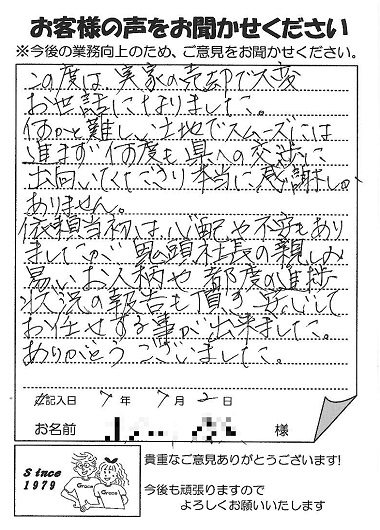 お客様の声をお聞かせください
※今後の業務向上のため、ご意見をお聞かせください。
この度は、実家の売却で大変
お世話になりました。
何かと難しい土地でスムーズには
進まず何度も県への交渉に
出向いてくださり本当に感謝しか
ありません。
依頼当初は心配や不安もあり
ましたが 鬼頭社長の親しみ
易いお人柄や 都度の進捗
状況の報告も頂き 安心して
お任せする事が出来ました。
ありがとうございました。
記入日 7年 7月 2日
お名前 様
Since
1979
Grace Grace
貴重なご意見ありがとうございます!
今後も頑張りますので
よろしくお願いいたします